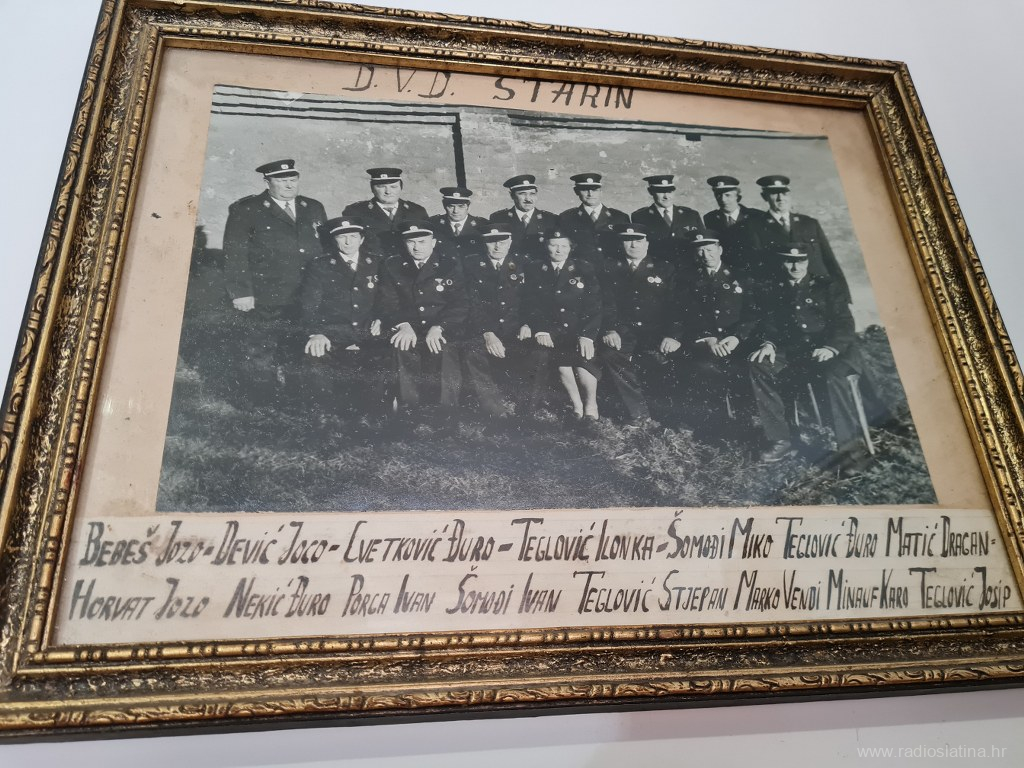 D.V.D. STARIN
BEBEŠ JOZO - DEVIĆ JOCO - CVETKOVIĆ ĐURO - TEGLOVIĆ ILONKA - ŠOMOĐI MIKO TEGLOVIĆ ĐURO MATIĆ DRAGAN -
HORVAT JOZO NEKIĆ ĐURO PORCA IVAN ŠOMOĐI IVAN TEGLOVIĆ STJEPAN, MARKO VENDI MINAUF KARO TEGLOVIĆ JOSIP
www.radioslatina.hr